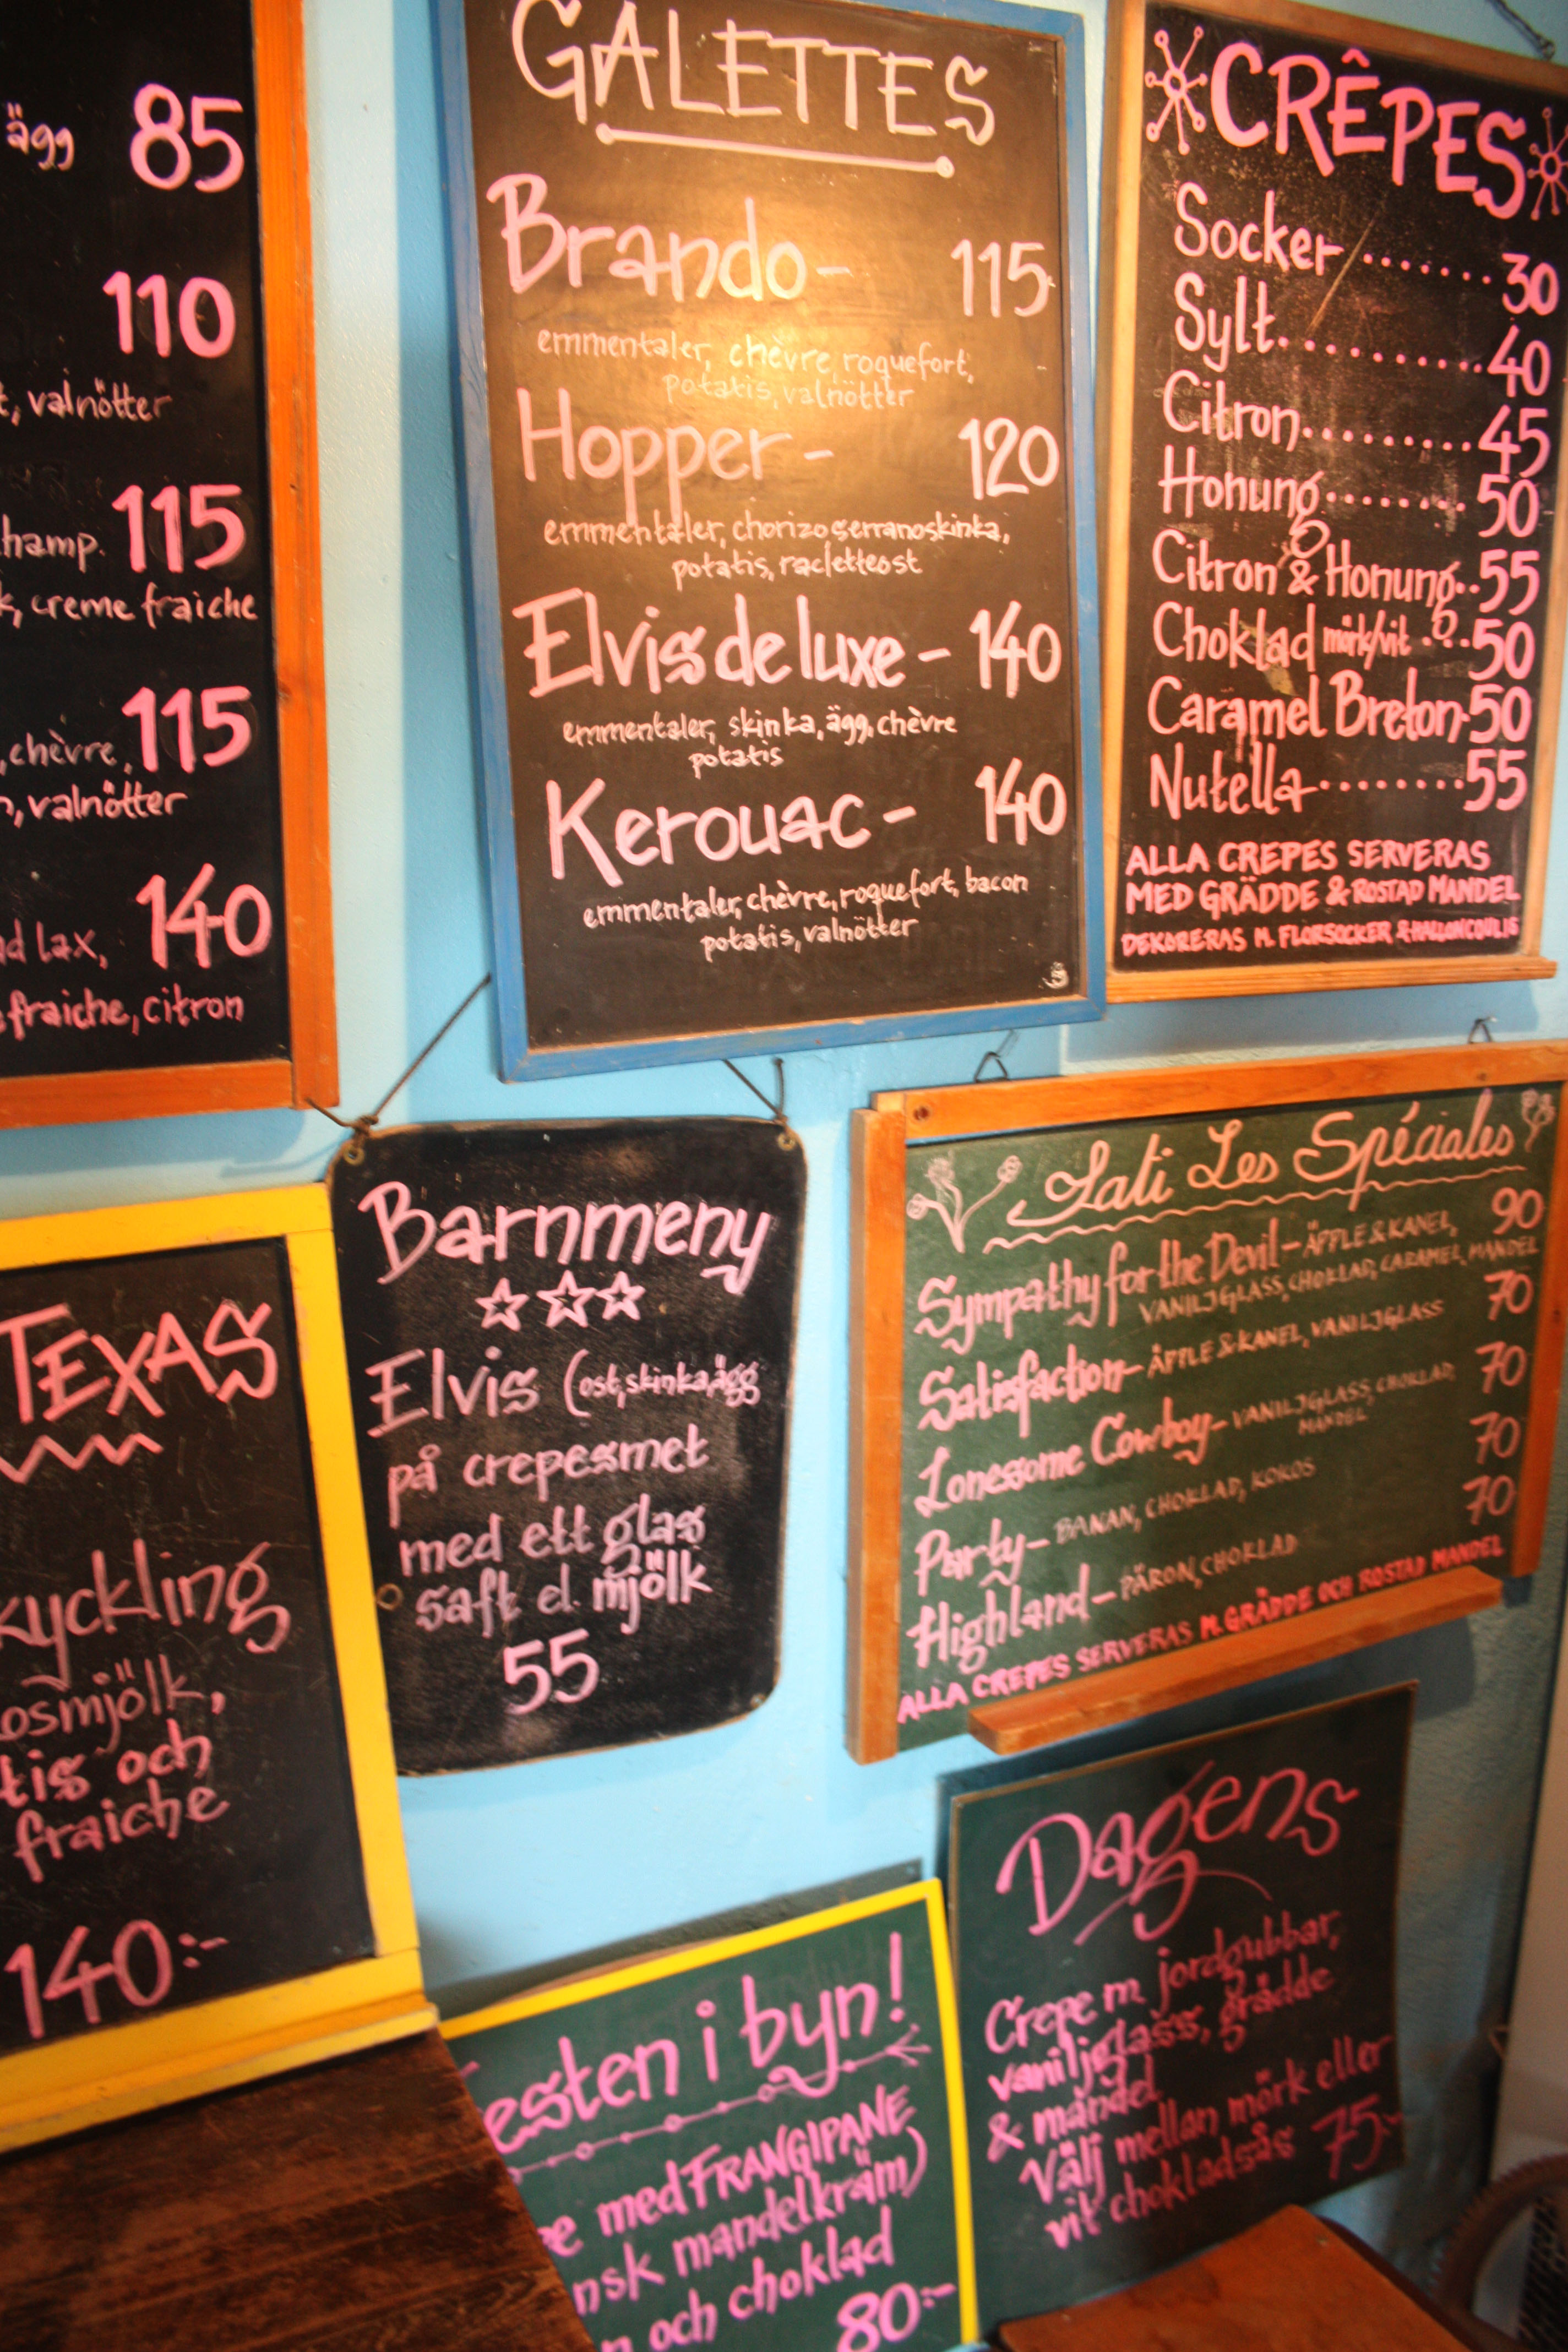 ägg 85
110
valnötter
115
creme fraiche
chèvre, 115
valnötter
lax, 140
fraiche, citron
GALETTES
Brando - 115
emmentaler, chèvre, roquefort,
potatis, valnötter
Hopper - 120
emmentaler, chorizo serranoskinka,
potatis, racletteost
Elvis de luxe - 140
emmentaler, skinka, ägg, chèvre
potatis
Kerouac - 140
emmentaler, chèvre, roquefort, bacon
potatis, valnötter
CRÊPES
Socker ....... 30
Sylt.......... 40
Citron......... 45
Honung....... 50
Citron & Honung.. 55
Choklad mörk/vit ... 50
Caramel Breton. 50
Nutella........ 55
ALLA CREPES SERVERAS
MED GRÄDDE & ROSTAD MANDEL
DEKORERAS M. FLORSOCKER & HALLONCOULIS
TEXAS
kyckling
osmjölk,
och
fraiche
140:-
Barnmeny
Elvis (ost, skinka, ägg
på crepesmet
med ett glas
saft el. mjölk
55
Lati Les Spéciales
Sympathy for the Devil - ÄPPLE & KANEL, 90
VANILJGLASS, CHOKLAD, CARAMEL, MANDEL
Satisfaction - ÄPPLE & KANEL, VANILJGLASS 70
Lonesome Cowboy - VANILJGLASS, CHOKLAD, 70
MANDEL
Party - BANAN, CHOKLAD, KOKOS 70
Highland - PÄRON, CHOKLAD 70
ALLA CREPES SERVERAS M. GRÄDDE OCH ROSTAD MANDEL
esten i byn!
med FRANGIPANE
nsk mandelkräm)
och choklad
80:-
Dagens
Crepe m. jordgubbar,
vaniljglass, grädde
& mandel
Välj mellan mörk eller
vit chokladsås 75:-